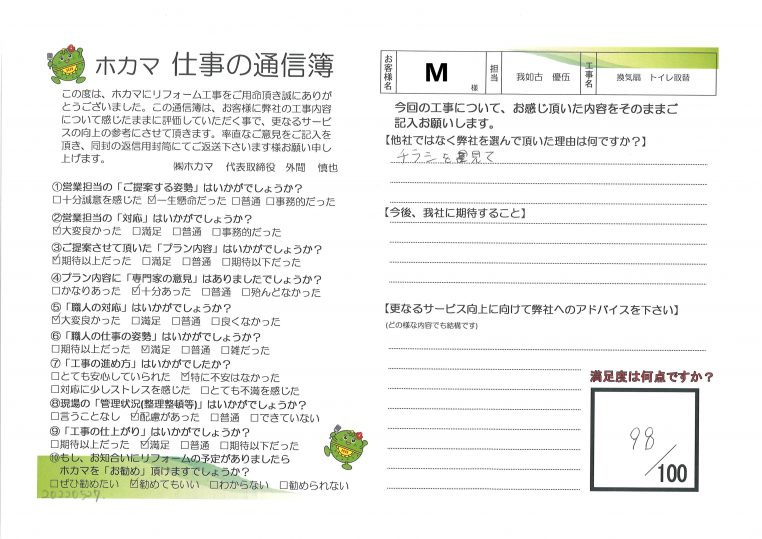 ホカマ 仕事の通信簿
この度は、ホカマにリフォーム工事をご用命頂き誠にありが
とうございました。この通信簿は、お客様に弊社の工事内容
について感じたままに評価していただく事で、更なるサービ
スの向上の参考にさせて頂きます。率直なご意見をご記入を
頂き、同封の返信用封筒にてご返送下さいます様お願い申し
上げます。
㈱ホカマ 代表取締役 外間 慎也
①営業担当の「ご提案する姿勢」はいかがでしょうか？
□十分誠意を感じた ☑一生懸命だった □普通 □事務的だった
②営業担当の「対応」はいかがでしょうか？
☑大変良かった □満足 □普通 □事務的だった
③ご提案させて頂いた「プラン内容」はいかがでしょうか？
☑期待以上だった □満足 □普通 □期待以下だった
④プラン内容に「専門家の意見」はありましたでしょうか？
□かなりあった ☑十分あった □普通 □殆んどなかった
⑤「職人の対応」はいかがでしょうか？
☑大変良かった □満足 □普通 □良くなかった
⑥「職人の仕事の姿勢」はいかがでしょうか？
□期待以上だった ☑満足 □普通 □雑だった
⑦「工事の進め方」はいかがでしたか？
□とても安心していられた ☑特に不安はなかった
□対応に少しストレスを感じた □とても不満を感じた
⑧現場の「管理状況(整理整頓等)」はいかがでしょうか？
□言うことなし ☑配慮があった □普通 □できていない
⑨「工事の仕上がり」はいかがでしょうか？
□期待以上だった ☑満足 □普通 □期待以下だった
⑩もし、お知合いにリフォームの予定がありましたら
ホカマを「お勧め」頂けますでしょうか？
□ぜひ勧めたい ☑勧めてもいい □わからない □勧められない
20220527
お客様名 M 様 担当 我如古 優伍 工事名 換気扇 トイレ取替
今回の工事について、お感じ頂いた内容をそのままご
記入お願いします。
【他社ではなく弊社を選んで頂いた理由は何ですか？】
チラシを見て
【今後、我社に期待すること】
【更なるサービス向上に向けて弊社へのアドバイスを下さい】
(どの様な内容でも結構です)
満足度は何点ですか？
98
/100